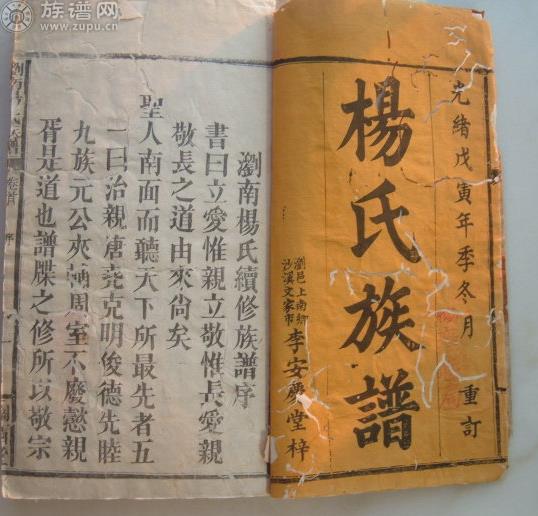 族谱网
www.zupu.cn
光緒戊寅年季冬月重訂
楊氏族譜
瀏邑上南鄉
沙溪文家市
李安慶堂梓
瀏南楊氏續修族譜序
書曰立愛惟親立敬惟長愛親
敬長之道由來尚矣
聖人南面而聽天下所最先者五
一曰治親唐堯克明俊德先睦
九族元公夾輔周室不廢懿親
胥是道也譜牒之修所以敬宗
卷首
序